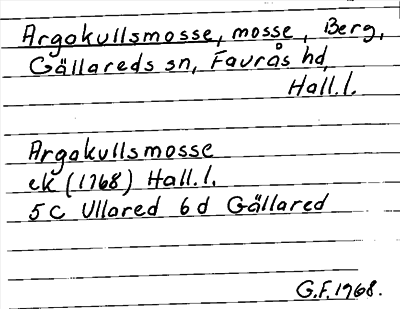 Argakullsmosse, mosse, Berg,
Gällareds sn, Faurås hd,
Hall.l.
Argakullsmosse
ek (1968) Hall.l.
5C Ullared 6d Gällared
G.F. 1968.